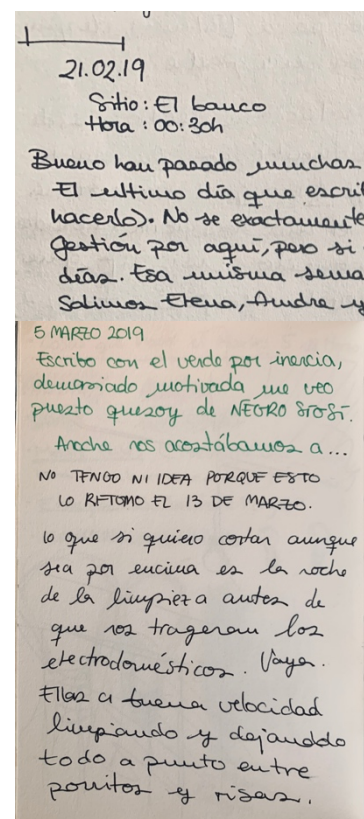 21.02.19
Sitio: El banco
Hora: 00:30h
Bueno han pasado muchas
El ultimo día que escrib
hacerlo). No se exactamente
gestión por aquí, pero si
días. Esa misma sema
Salimos Elena, Andre y
5 MARZO 2019
Escribo con el verde por inercia,
demasiado motivada me veo
puesto que soy de NEGRO SISISÍ.
Anoche nos acostábamos a...
NO TENGO NI IDEA PORQUE ESTO
LO RETOMO EL 13 DE MARZO.
lo que si quiero contar aunque
sea por encima es la noche
de la limpieza antes de
que nos trageran los
electrodomésticos. Vaya.
Ellas a buena velocidad
limpiando y dejanddo
todo a punto entre
porritos y risas.